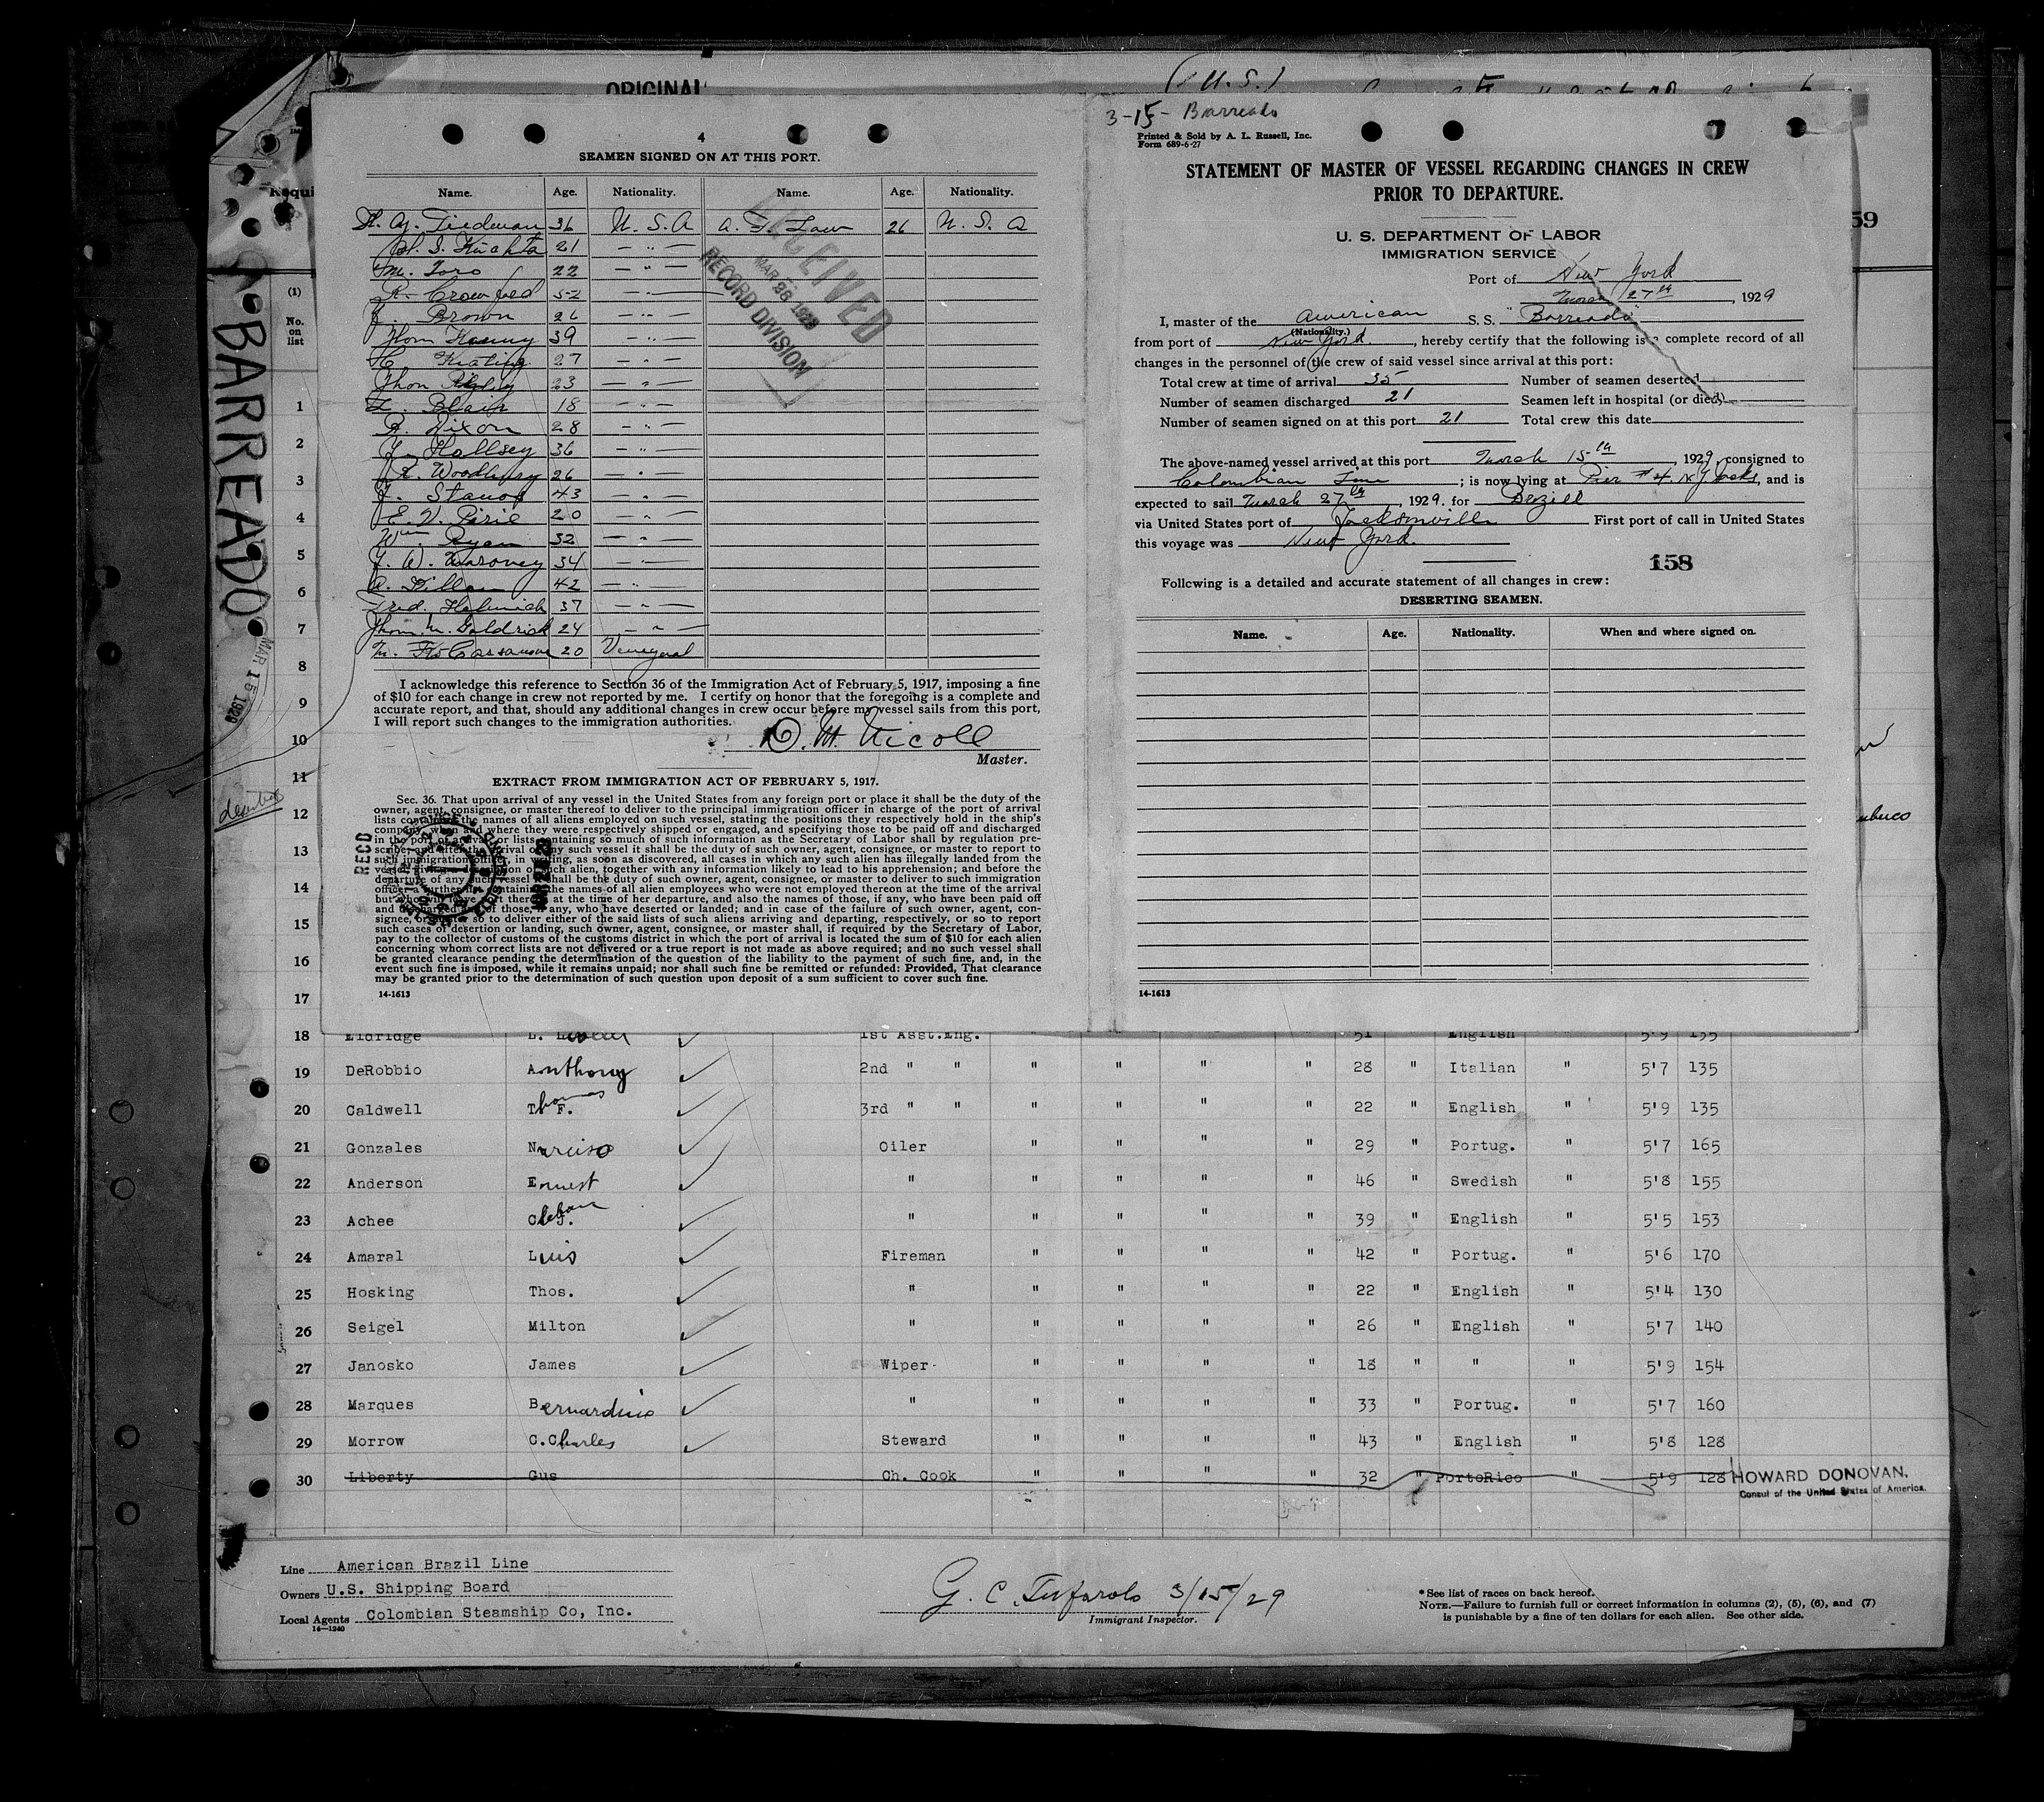 ORIGINAL
(U.S.)
4
SEAMEN SIGNED ON AT THIS PORT.
Name. Age. Nationality. Name. Age. Nationality.
Tiedman 36 U.S.A A. F. Law 26 U.S.A
21 - " -
M. Toro 22 - " -
R. Crowford 52 - " -
J. Brown 26 - " -
39 - " -
H Keating 27 - " -
23 - " -
L. Blair 18 - " -
R. Dixon 28 - " -
Hallsey 36 - " -
R. Woodbury 26 - " -
43 - " -
E. V. Pirie 20 - " -
Wm Ryan 32 - " -
J. W. Maroney 34 - " -
42 - " -
Fred. 37 - " -
Goldrick 24 - " -
20
RECEIVED
MAR 28 1929
RECORD DIVISION
I acknowledge this reference to Section 36 of the Immigration Act of February 5, 1917, imposing a fine
of $10 for each change in crew not reported by me. I certify on honor that the foregoing is a complete and
accurate report, and that, should any additional changes in crew occur before my vessel sails from this port,
I will report such changes to the immigration authorities.
Nicoll
Master.
EXTRACT FROM IMMIGRATION ACT OF FEBRUARY 5, 1917.
Sec. 36. That upon arrival of any vessel in the United States from any foreign port or place it shall be the duty of the
owner, agent, consignee, or master thereof to deliver to the principal immigration officer in charge of the port of arrival
lists containing the names of all aliens employed on such vessel, stating the positions they respectively hold in the ship's
company, when and where they were respectively shipped or engaged, and specifying those to be paid off and discharged
in the port of arrival or lists containing so much of such information as the Secretary of Labor shall by regulation pre-
scribe; and after the arrival of any such vessel it shall be the duty of such owner, agent, consignee, or master to report to
such immigration officer, in writing, as soon as discovered, all cases in which any such alien has illegally landed from the
vessel, giving a description of such alien, together with any information likely to lead to his apprehension; and before the
departure of any such vessel it shall be the duty of such owner, agent, consignee, or master to deliver to such immigration
officer a further list containing the names of all alien employees who were not employed thereon at the time of the arrival
but who will leave port thereon at the time of her departure, and also the names of those, if any, who have been paid off
and discharged, and of those, if any, who have deserted or landed; and in case of the failure of such owner, agent, con-
signee, or master so to deliver either of the said lists of such aliens arriving and departing, respectively, or so to report
such cases of desertion or landing, such owner, agent, consignee, or master shall, if required by the Secretary of Labor,
pay to the collector of customs of the customs district in which the port of arrival is located the sum of $10 for each alien
concerning whom correct lists are not delivered or a true report is not made as above required; and no such vessel shall
be granted clearance pending the determination of the question of the liability to the payment of such fine, and, in the
event such fine is imposed, while it remains unpaid; nor shall such fine be remitted or refunded: Provided, That clearance
may be granted prior to the determination of such question upon deposit of a sum sufficient to cover such fine.
14-1613
RECD
3-15- Barreado
Printed & Sold by A. L. Russell, Inc.
Form 689-6-27
STATEMENT OF MASTER OF VESSEL REGARDING CHANGES IN CREW
PRIOR TO DEPARTURE.
U. S. DEPARTMENT OF LABOR
IMMIGRATION SERVICE
Port of New York
March 27th, 1929
I, master of the American S. S. Barreado
(Nationality.)
from port of New York, hereby certify that the following is a complete record of all
changes in the personnel of the crew of said vessel since arrival at this port:
Total crew at time of arrival 35 Number of seamen deserted
Number of seamen discharged 21 Seamen left in hospital (or died)
Number of seamen signed on at this port 21 Total crew this date
The above-named vessel arrived at this port March 15th, 1929, consigned to
Colombian Line; is now lying at Pier #4 N Y Docks, and is
expected to sail March 27th, 1929. for Brazil
via United States port of Jacksonville First port of call in United States
this voyage was New York.
158
Following is a detailed and accurate statement of all changes in crew:
DESERTING SEAMEN.
Name. Age. Nationality. When and where signed on.
14-1613
59
BARREADO
MAR 15 1929
(1)
No.
on
list
1
2
3
4
5
6
7
8
9
10
11
12
13
14
15
16
17
18 Eldridge L. 1st Asst.Eng. 51 English 5'9 155
19 DeRobbio Anthony 2nd " " " " " " 28 " Italian " 5'7 135
20 Caldwell Thomas F. 3rd " " " " " " 22 " English " 5'9 135
21 Gonzales Narciso Oiler " " " " 29 " Portug. " 5'7 165
22 Anderson Ernest " " " " " 46 " Swedish " 5'8 155
23 Achee " " " " " 39 " English " 5'5 153
24 Amaral Luis Fireman " " " " 42 " Portug. " 5'6 170
25 Hosking Thos. " " " " " 22 " English " 5'4 130
26 Seigel Milton " " " " " 26 " English " 5'7 140
27 Janosko James Wiper " " " " 18 " " " 5'9 154
28 Marques Bernardino " " " " " 33 " Portug. " 5'7 160
29 Morrow C.Charles Steward " " " " 43 " English " 5'8 128
30 Liberty Gus Ch. Cook " " " " 32 " PortoRico " 5'9 128
HOWARD DONOVAN.
Consul of the United States of America.
Line American Brazil Line
Owners U.S. Shipping Board
Local Agents Colombian Steamship Co, Inc.
14-1240
G. C. Tufarolo 3/15/29
Immigrant Inspector.
*See list of races on back hereof.
NOTE.—Failure to furnish full or correct information in columns (2), (5), (6), and (7)
is punishable by a fine of ten dollars for each alien. See other side.